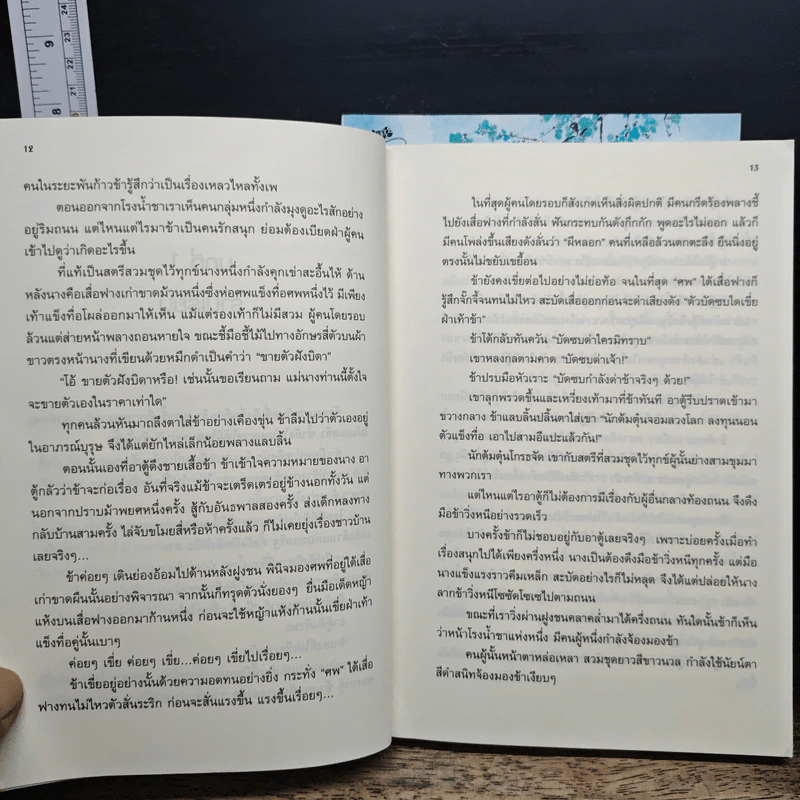 9
8
12
คนในระยะพันก้าวข้ารู้สึกว่าเป็นเรื่องเหลวไหลทั้งเพ
ตอนออกจากโรงน้ำชาเราเห็นคนกลุ่มหนึ่งกำลังมุงดูอะไรสักอย่าง
อยู่ริมถนน แต่ไหนแต่ไรมาข้าเป็นคนรักสนุก ย่อมต้องเบียดฝ่าผู้คน
เข้าไปดูว่าเกิดอะไรขึ้น
ที่แท้เป็นสตรีสวมชุดไว้ทุกข์นางหนึ่งกำลังคุกเข่าสะอื้นไห้ ด้าน
หลังนางคือเสื่อฟางเก่าขาดม้วนหนึ่งซึ่งห่อศพแข็งทื่อศพหนึ่งไว้ มีเพียง
เท้าแข็งทื่อโผล่ออกมาให้เห็น แม้แต่รองเท้าก็ไม่มีสวม ผู้คนโดยรอบ
ล้วนแต่ส่ายหน้าพลางถอนหายใจ ขณะชี้มือชี้ไม้ไปทางอักษรสี่ตัวบนผ้า
ขาวตรงหน้านางที่เขียนด้วยหมึกดำเป็นคำว่า "ขายตัวฝังบิดา"
"โอ้ ขายตัวฝังบิดาหรือ! เช่นนั้นขอเรียนถาม แม่นางท่านนี้ตั้งใจ
จะขายตัวเองในราคาเท่าใด"
ทุกคนล้วนหันมาถลึงตาใส่ข้าอย่างเคืองขุ่น ข้าลืมไปว่าตัวเองอยู่
ในอาภรณ์บุรุษ จึงได้แต่ยักไหล่เล็กน้อยพลางแลบลิ้น
ตอนนั้นเองที่อาตู้ดึงชายเสื้อข้า ข้าเข้าใจความหมายของนาง อา
ตู้กลัวว่าข้าจะก่อเรื่อง อันที่จริงแม้ข้าจะเตร็ดเตร่อยู่ข้างนอกทั้งวัน แต่
นอกจากปราบม้าพยศหนึ่งครั้ง สู้กับอันธพาลสองครั้ง ส่งเด็กหลงทาง
กลับบ้านสามครั้ง ไล่จับขโมยสี่หรือห้าครั้งแล้ว ก็ไม่เคยยุ่งเรื่องชาวบ้าน
เลยจริงๆ...
ข้าค่อยๆ เดินย่องอ้อมไปด้านหลังฝูงชน พินิจมองศพที่อยู่ใต้เสื่อ
เก่าขาดผืนนั้นอย่างพิจารณา จากนั้นก็ทรุดตัวนั่งยองๆ ยื่นมือเด็ดหญ้า
แห้งบนเสื่อฟางออกมาก้านหนึ่ง ก่อนจะใช้หญ้าแห้งก้านนั้นเขี่ยฝ่าเท้า
แข็งทื่อคู่นั้นเบาๆ
ค่อยๆ เขี่ย ค่อยๆ เขี่ย...ค่อยๆ เขี่ยไปเรื่อยๆ...
ข้าเขี่ยอยู่อย่างนั้นด้วยความอดทนอย่างยิ่ง กระทั่ง "ศพ" ใต้เสื่อ
ฟางทนไม่ไหวตัวสั่นระริก ก่อนจะสั่นแรงขึ้น แรงขึ้นเรื่อยๆ...
13
ในที่สุดผู้คนโดยรอบก็สังเกตเห็นสิ่งผิดปกติ มีคนกรีดร้องพลางชี้
ไปยังเสื่อฟางที่กำลังสั่น ฟันกระทบกันดังกึกกัก พูดอะไรไม่ออก แล้วก็
มีคนโพล่งขึ้นเสียงดังลั่นว่า "ผีหลอก" คนที่เหลือล้วนตกตะลึง ยืนนิ่งอยู่
ตรงนั้นไม่ขยับเขยื้อน
ข้ายังคงเขี่ยต่อไปอย่างไม่ย่อท้อ จนในที่สุด "ศพ" ใต้เสื่อฟางก็
รู้สึกจั๊กจี้จนทนไม่ไหว สะบัดเสื่อออกก่อนจะด่าเสียงดัง "ตัวบัดซบใดเขี่ย
ฝ่าเท้าข้า"
ข้าโต้กลับทันควัน "บัดซบด่าใครมิทราบ"
เขาหลงกลตามคาด "บัดซบด่าเจ้า!"
ข้าปรบมือหัวเราะ "บัดซบกำลังด่าข้าจริงๆ ด้วย!"
เขาลุกพรวดขึ้นและเหวี่ยงเท้ามาที่ข้าทันที อาตู้รีบปราดเข้ามา
ขวางกลาง ข้าแลบลิ้นปลิ้นตาใส่เขา "นักต้มตุ๋นจอมลวงโลก ลงทุนนอน
ตัวแข็งทื่อ เอาไปสามอีแปะแล้วกัน!"
นักต้มตุ๋นโกรธจัด เขากับสตรีที่สวมชุดไว้ทุกข์ผู้นั้นย่างสามขุมมา
ทางพวกเรา
แต่ไหนแต่ไรอาตู้ก็ไม่ต้องการมีเรื่องกับผู้อื่นกลางท้องถนน จึงดึง
มือข้าวิ่งหนีอย่างรวดเร็ว
บางครั้งข้าก็ไม่ชอบอยู่กับอาตู้เลยจริงๆ เพราะบ่อยครั้งเมื่อทำ
เรื่องสนุกไปได้เพียงครึ่งหนึ่ง นางเป็นต้องดึงมือข้าวิ่งหนีทุกครั้ง แต่มือ
นางแข็งแรงราวคีมเหล็ก สะบัดอย่างไรก็ไม่หลุด จึงได้แต่ปล่อยให้นาง
ลากข้าวิ่งหนีโซซัดโซเซไปตามถนน
ขณะที่เราวิ่งผ่านฝูงชนคลาคล่ำมาได้ครึ่งถนน ทันใดนั้นข้าก็เห็น
ว่าหน้าโรงน้ำชาแห่งหนึ่ง มีคนผู้หนึ่งกำลังจ้องมองข้า
คนผู้นั้นหน้าตาหล่อเหลา สวมชุดยาวสีขาวนวล กำลังใช้นัยน์ตา
สีดำสนิทจ้องมองข้าเงียบๆ